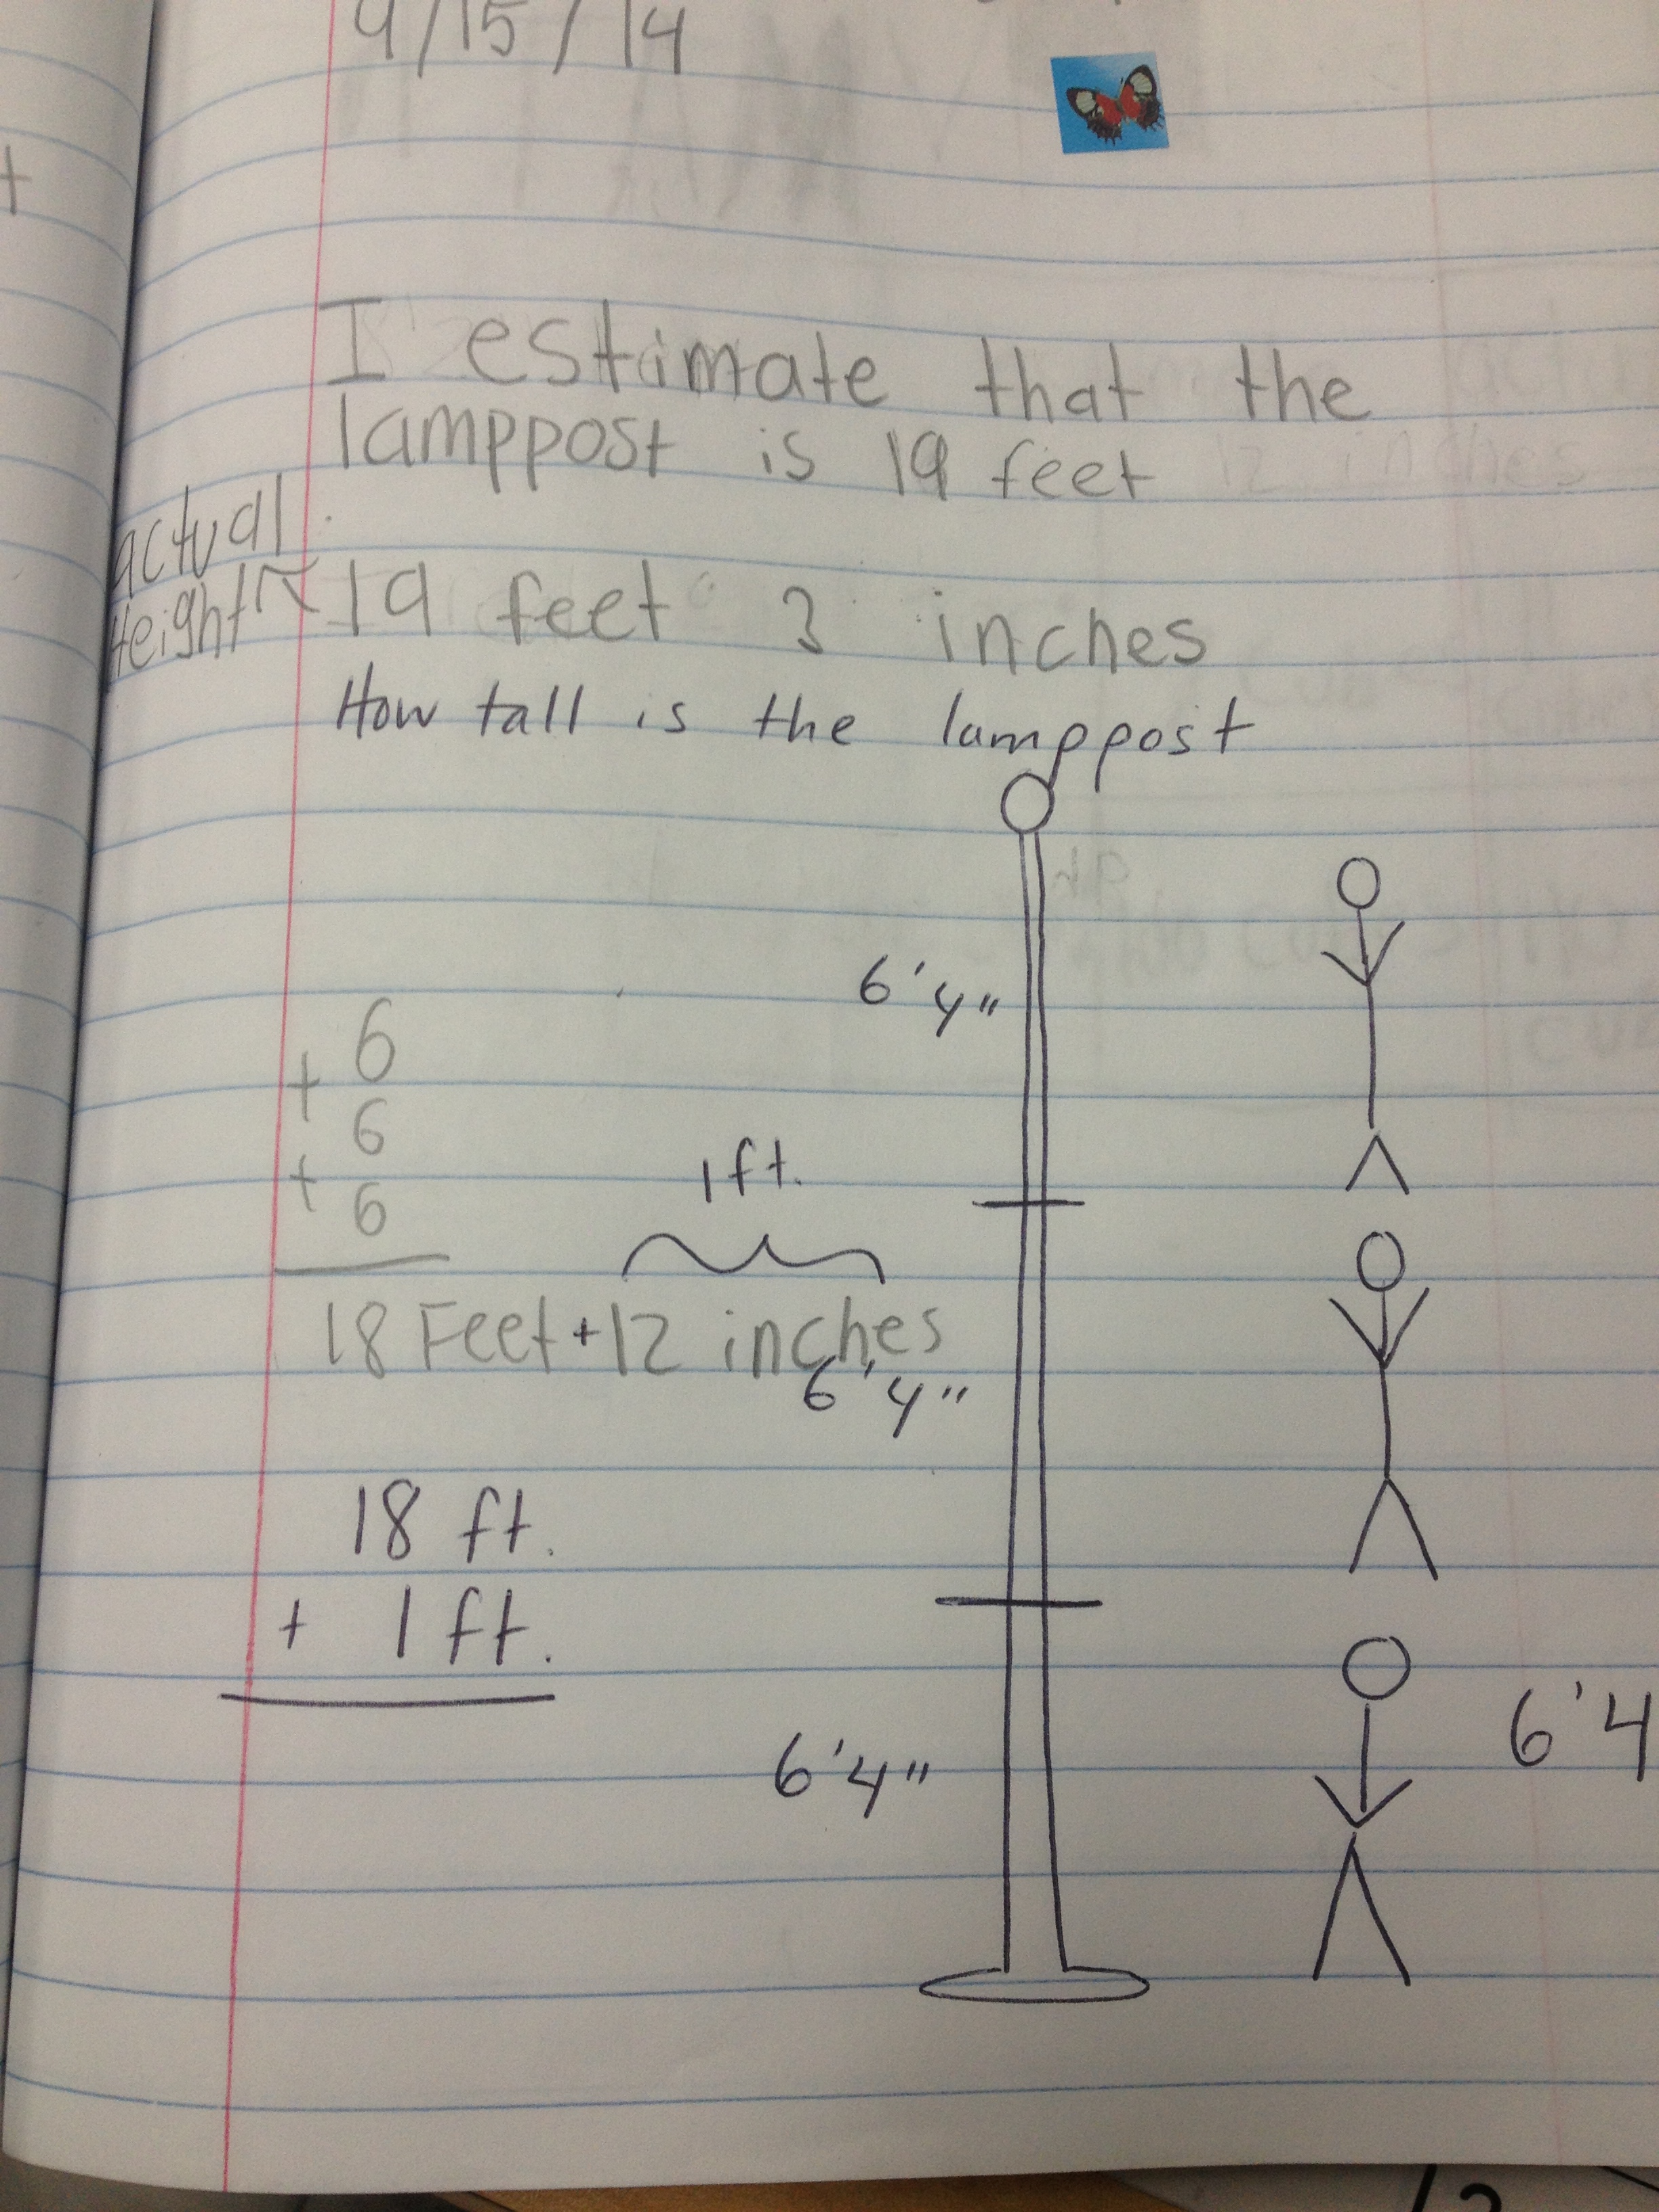 9/15/14
I estimate that the
lamppost is 19 feet
actual
Height
19 feet 3 inches
How tall is the lamppost
6'4"
6
+ 6
+ 6
1ft.
18 Feet + 12 inches
6'4"
18 ft.
+ 1 ft.
6'4"
6'4